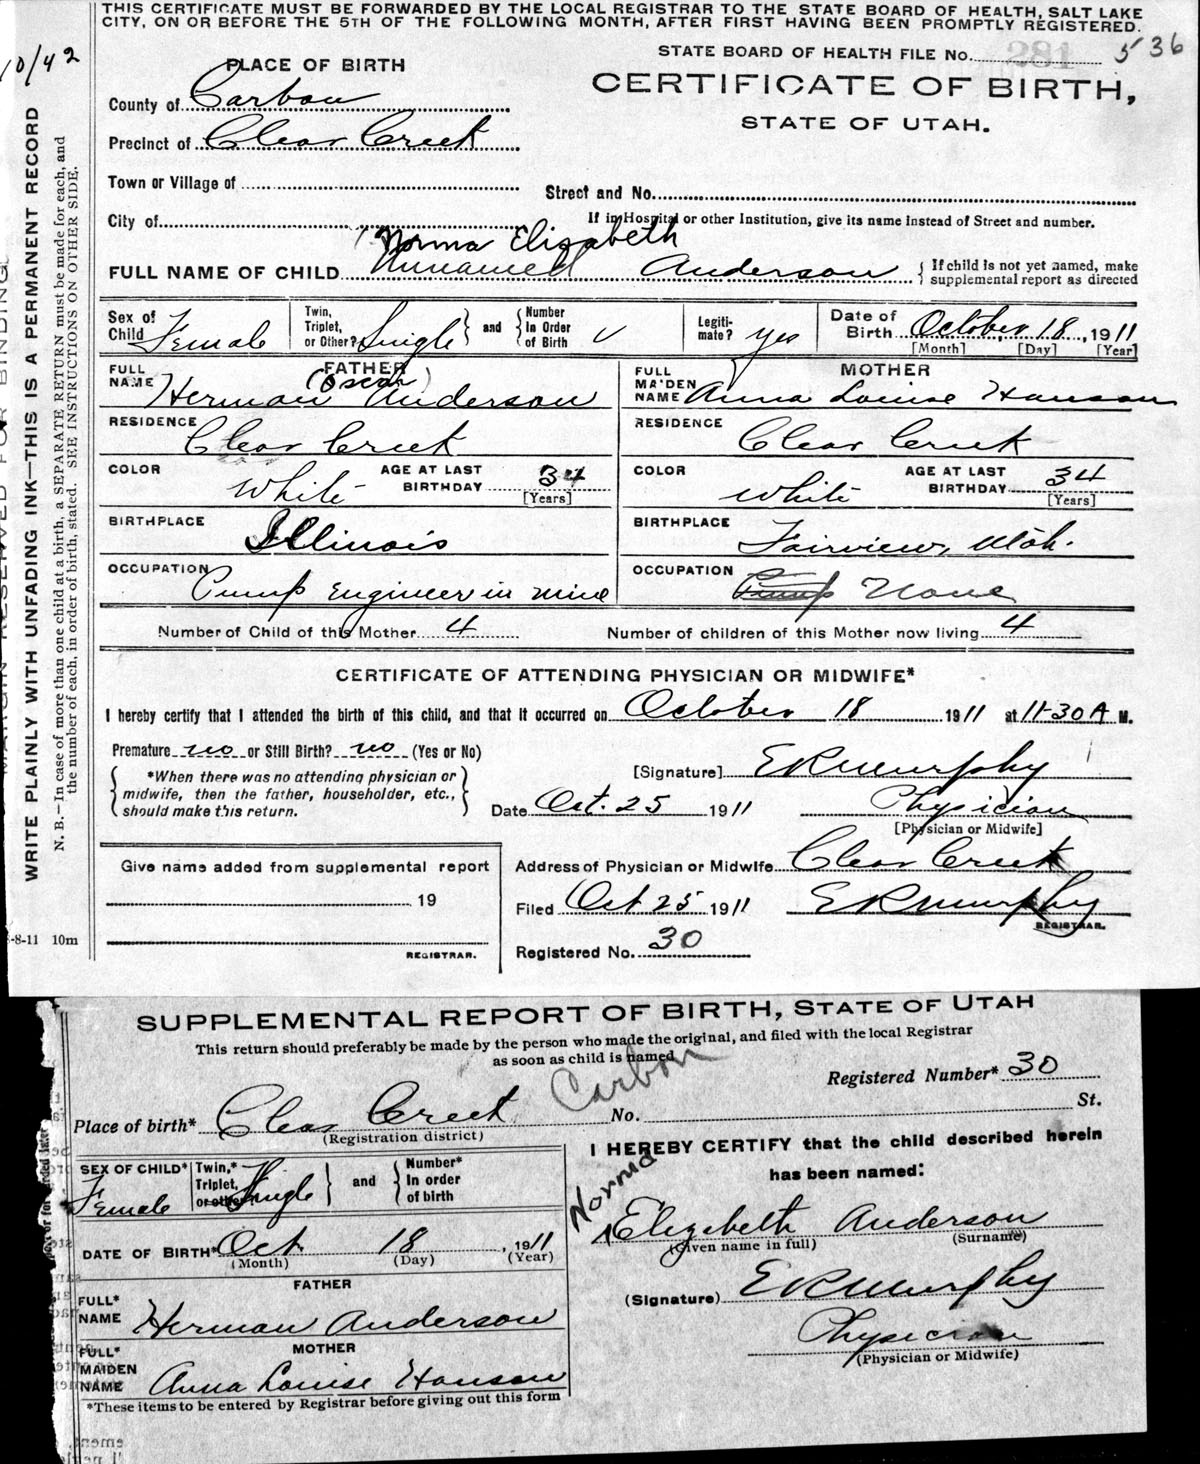 THIS CERTIFICATE MUST BE FORWARDED BY THE LOCAL REGISTRAR TO THE STATE BOARD OF HEALTH, SALT LAKE
CITY, ON OR BEFORE THE 5TH OF THE FOLLOWING MONTH, AFTER FIRST HAVING BEEN PROMPTLY REGISTERED.
10/42
STATE BOARD OF HEALTH FILE No. 281 536
PLACE OF BIRTH
CERTIFICATE OF BIRTH,
STATE OF UTAH.
County of Carbon
Precinct of Clear Creek
Town or Village of
Street and No.
City of
If in Hospital or other Institution, give its name instead of Street and number.
Norma Elizabeth
FULL NAME OF CHILD Unnamed Anderson { If child is not yet named, make
supplemental report as directed
Sex of Child Female
Twin, Triplet, or Other? Single } and { Number In Order of Birth
Legiti-mate? yes
Date of Birth October 18, 1911
[Month] [Day] [Year]
FATHER
FULL NAME Herman (Oscar) Anderson
MOTHER
FULL MAIDEN NAME Anna Louise Hanson
RESIDENCE Clear Creek
RESIDENCE Clear Creek
COLOR White AGE AT LAST BIRTHDAY 34 [Years]
COLOR White AGE AT LAST BIRTHDAY 34 [Years]
BIRTHPLACE Illinois
BIRTHPLACE Fairview, Utah.
OCCUPATION Pump Engineer in mine
OCCUPATION Pump None
Number of Child of this Mother 4
Number of children of this Mother now living 4
CERTIFICATE OF ATTENDING PHYSICIAN OR MIDWIFE*
I hereby certify that I attended the birth of this child, and that it occurred on October 18 1911 at 11-30 A. M.
Premature no or Still Birth? no (Yes or No)
{ *When there was no attending physician or
midwife, then the father, householder, etc.,
should make this return. }
[Signature] E R Murphy
Date Oct. 25 1911 Physician
[Physician or Midwife]
Give name added from supplemental report
19
REGISTRAR.
Address of Physician or Midwife Clear Creek
Filed Oct 25 1911 E R Murphy
REGISTRAR.
Registered No. 30
-8-11 10m
MARGIN RESERVED FOR BINDING
WRITE PLAINLY WITH UNFADING INK—THIS IS A PERMANENT RECORD
N. B.—In case of more than one child at a birth, a SEPARATE RETURN must be made for each, and
the number of each, in order of birth, stated. SEE INSTRUCTIONS ON OTHER SIDE.
SUPPLEMENTAL REPORT OF BIRTH, STATE OF UTAH
This return should preferably be made by the person who made the original, and filed with the local Registrar
as soon as child is named
Registered Number* 30
Place of birth* Clear Creek Carbon No. St.
(Registration district)
SEX OF CHILD* Female
Twin,* Triplet, or other Single } and { Number* In order of birth
DATE OF BIRTH* Oct. 18, 1911
(Month) (Day) (Year)
FATHER
FULL* NAME Herman Anderson
MOTHER
FULL* MAIDEN NAME Anna Louise Hanson
*These items to be entered by Registrar before giving out this form
I HEREBY CERTIFY that the child described herein
has been named:
Norma
Elizebeth Anderson
(Given name in full) (Surname)
(Signature) E R Murphy
Physician
(Physician or Midwife)